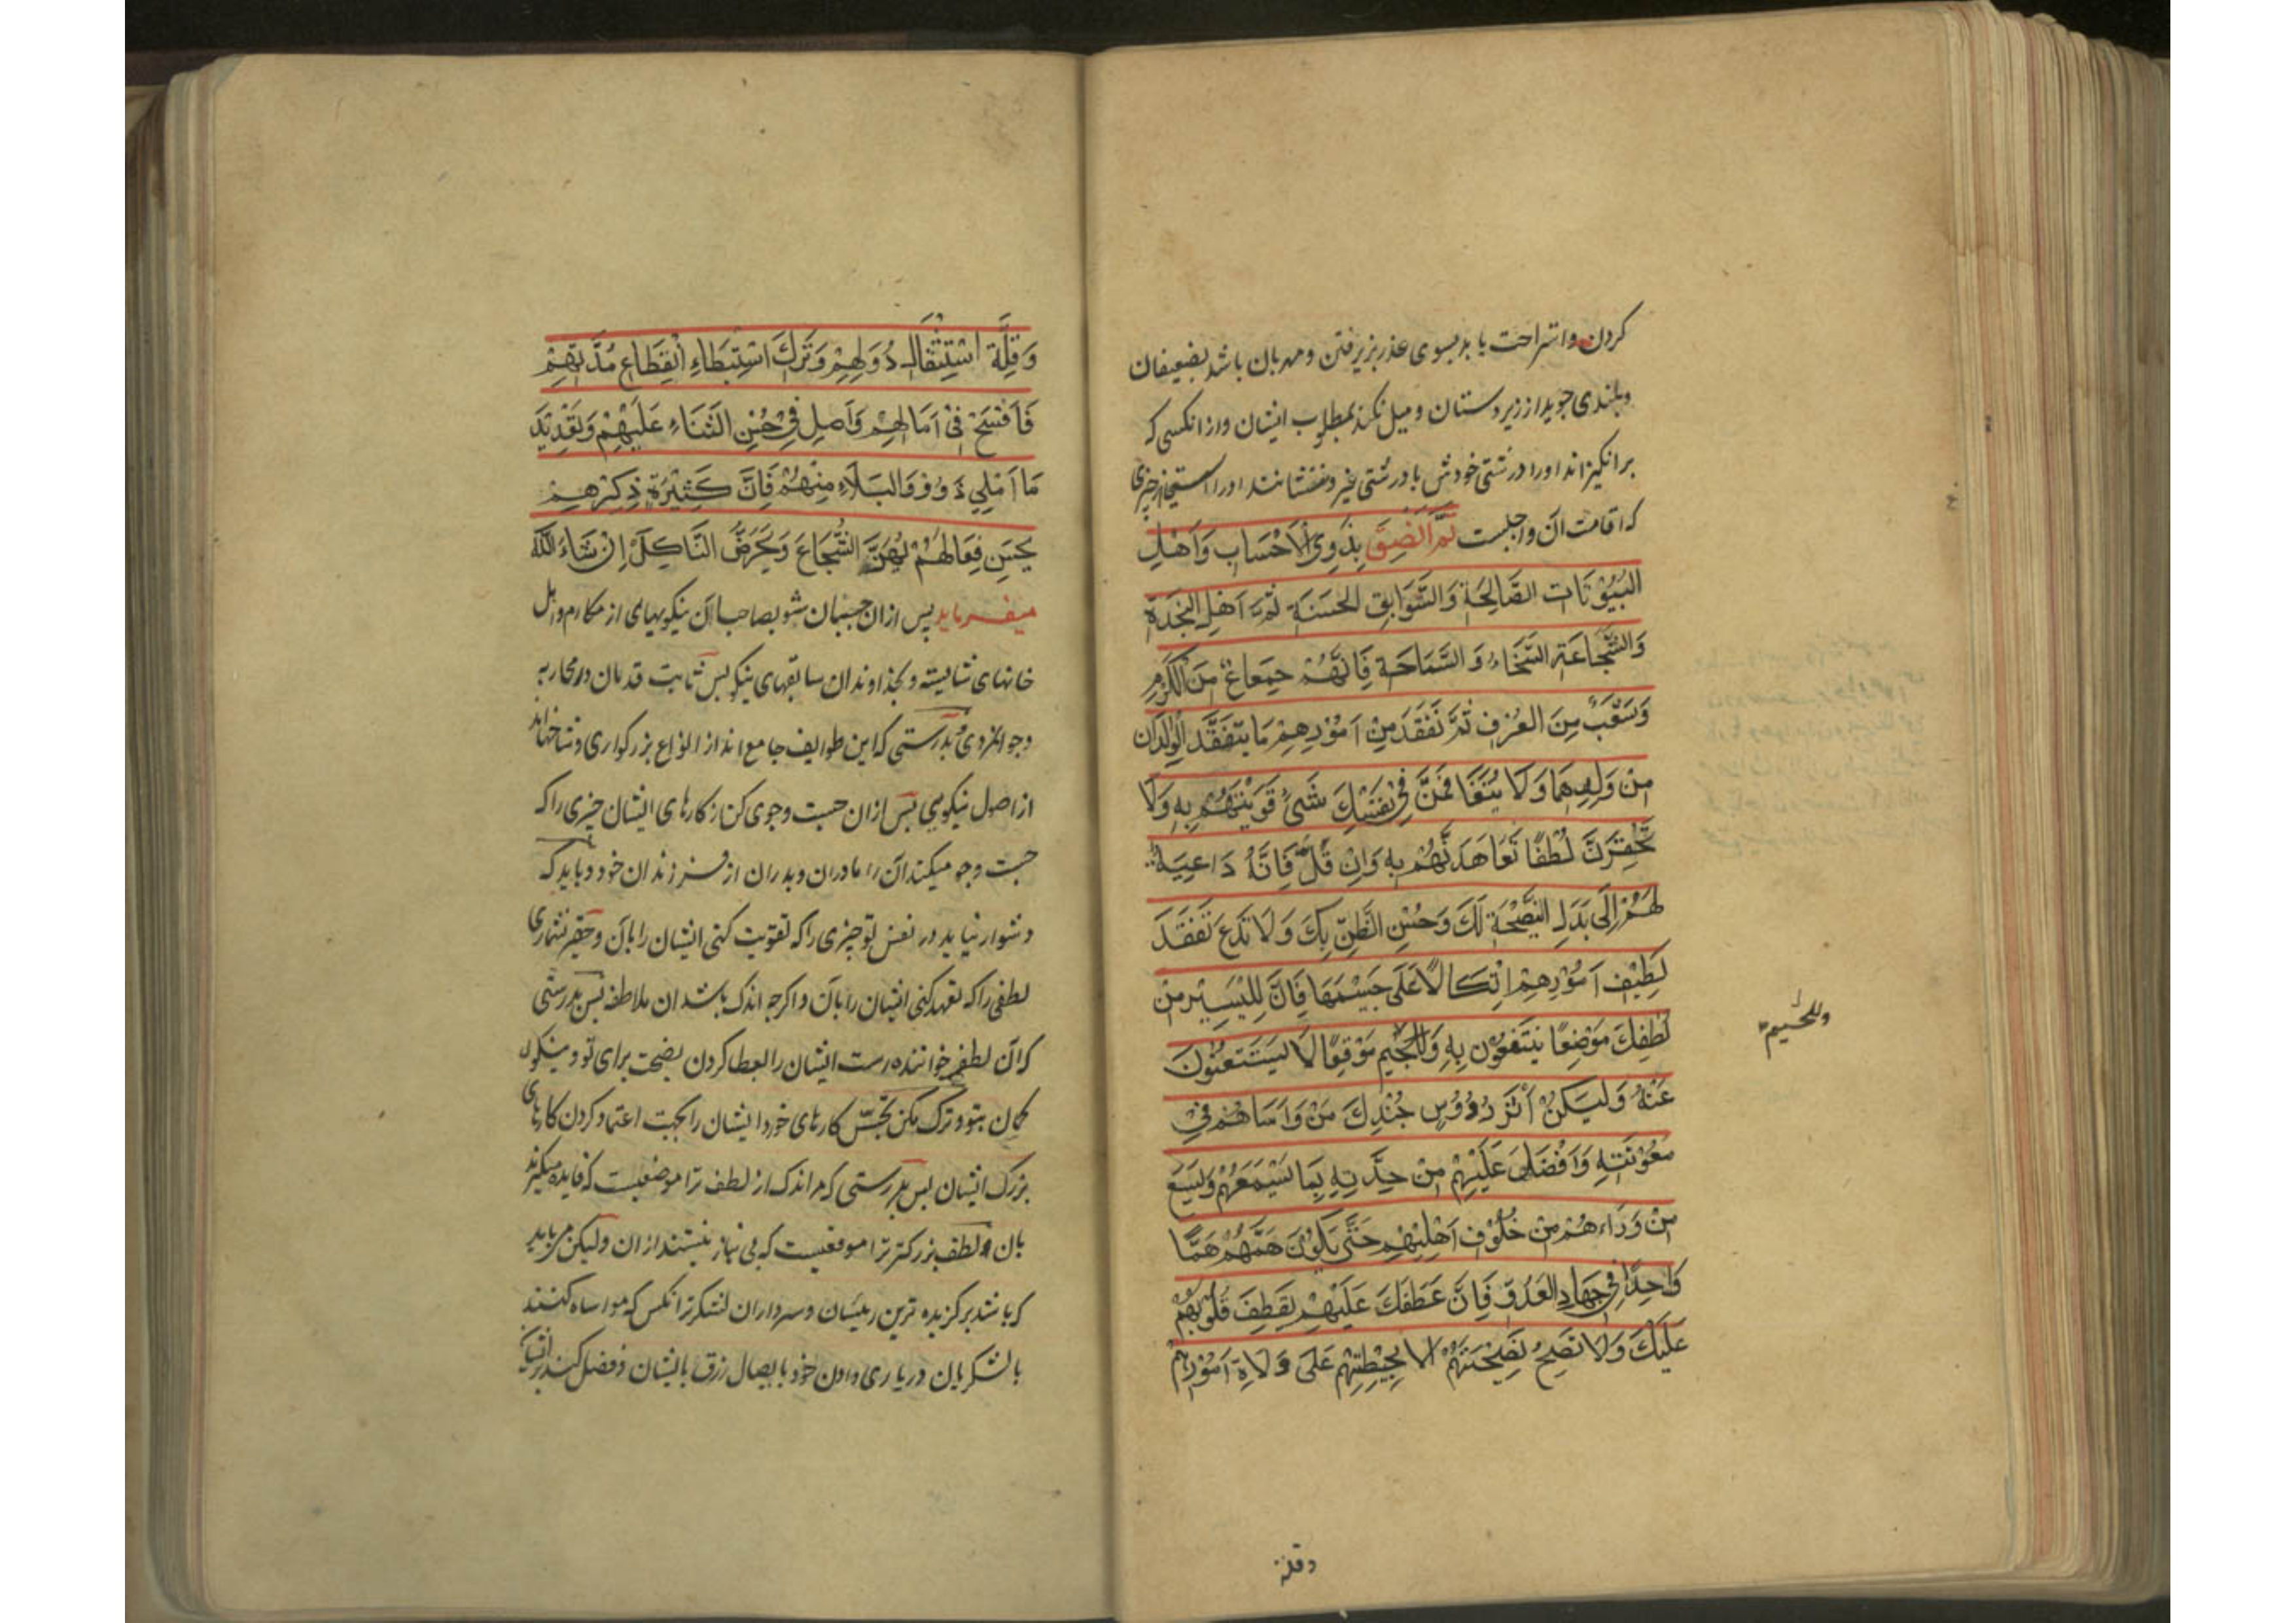 کردن واستراحت یابد بسوی عذر پزیرفتن ومهربان باشد بضعیفان
وبلندی جوید از زیردستان ومیل نکند بمطلوب ایشان واز انکسی که
برانگیزاند اورا درشتی خودش یا درشتی غیر ونفشانند اورا
که اقامت ان واجبست ثُمَّ الْصِقْ بِذَوِی الْاَحْسَابِ وَاَهْلِ
البُیُوْتَاتِ الصَّالِحَةِ وَالسَّوَابِقِ الحَسَنَةِ ثُمَّ اَهْلِ النَّجْدَةِ
وَالشَّجَاعَةِ السَّخَاءِ وَ السَّمَاحَةِ فَاِنَّهُمْ جِمَاعٌ مِنَ الْکَرَمِ
وَشُعَبٌ مِنَ العُرْفِ ثُمَّ تَفَقَّدَ مِنْ اُمُوْرِهِمْ مَا یَتَفَقَّدُ الْوَالِدَانِ
مِنْ وَلَدِهِمَا وَلَا یَتَفَاقَمَنَّ فِیْ نَفْسِكَ شَیْءٌ قَوَّیْتَهُمْ بِهِ وَلَا
تَحْقِرَنَّ لُطْفًا تَعَاهَدْتَهُمْ بِهِ وَاِنْ قَلَّ فَاِنَّهُ دَاعِیَةٌ
لَهُمْ اِلَی بَذْلِ النَّصِیْحَةِ لَكَ وَحُسْنِ الظَّنِّ بِكَ وَلَا تَدَعْ تَفَقُّدَ
لَطِیْفِ اُمُوْرِهِمْ اتِّکَالًا عَلَی جَسِیْمِهَا فَاِنَّ لِلْیَسِیْرِ مِنْ
لُطْفِكَ مَوْضِعًا یَنْتَفِعُوْنَ بِهِ وَالْجَسِیْمِ مَوْقِعًا لَا یَسْتَغْنُوْنَ
وللجسیم
عَنْهُ وَلْیَکُنْ اٰثَرُ رُءُوْسِ جُنْدِكَ مَنْ وَاسَاهُمْ فِیْ
مَعُوْنَتِهِ وَاَفْضَلَ عَلَیْهِمْ مِنْ جِدَتِهِ بِمَا یَسَعُهُمْ وَیَسَعُ
مَنْ وَرَاءَهُمْ مِنْ خُلُوْفِ اَهْلِیْهِمْ حَتَّی یَکُوْنَ هَمُّهُمْ هَمًّا
وَاحِدًا فِی جِهَادِ العَدُوِّ فَاِنَّ عَطْفَكَ عَلَیْهِمْ یَعْطِفُ قُلُوْبَهُمْ
عَلَیْكَ وَلَا تَصِحُّ نَصِیْحَتُهُمْ اِلَّا بِحِیْطَتِهِمْ عَلَی وُلَاةِ اُمُوْرِهِمْ
وقلة
وَقِلَّةِ اسْتِثْقَالِ دُوَلِهِمْ وَتَرْكِ اسْتِبْطَاءِ انْقِطَاعِ مُدَّتِهِمْ
فَافْسَحْ فِیْ اٰمَالِهِمْ وَاَصِلْ فِیْ حُسْنِ الثَّنَاءِ عَلَیْهِمْ وَتَعْدِیْدِ
مَا اَبْلَی ذَوُوْ الْبَلَاءِ مِنْهُمْ فَاِنَّ کَثْرَةَ ذِکْرِهِمْ
بِحُسْنِ فِعَالِهِمْ تَهُزُّ الشُّجَاعَ وَتُحَرِّضُ النَّاکِلَ اِنْ شَاءَ اللّٰه
میفرماید پس ازان چسبان شو بصاحبان نیکویهای از مکارم واهل
خانهای شایسته وبخداوندان سابقهای نیکو پس ثابت قدمان در محاربه
وجوانمردی بدرستی که این طوایف جامع اند از انواع بزرکواری وشاخهااند
از اصول نیکویی پس ازان جست وجوی کن از کارهای ایشان چیزی را که
جست وجو میکنند ان را مادران وپدران از فرزندان خود وباید که
دشوار نیاید در نفس تو چیزی را که تقویت کنی ایشان را بان وحقیر نشماری
لطفی را که تعهد کنی ایشان را بان واکرچه اندک باشد ان ملاطفه پس بدرستی
که ان لطف خواننده است ایشان را بعطا کردن نصیحت برای تو ونیکوی
کمان بتو وترک مکن تجسّس کارهای خورد ایشان را بجهت اعتماد کردن کارهای
بزرک ایشان پس بدرستی که مر اندک از لطف ترا موضعیست که فایده میکیرند
بان ولطف بزرکتر ترا موقعیست که بی نیاز نیستند ازان ولیکن می باید
که باشد برکزیده ترین رییسان وسرداران لشکر تو انکس که مواساه کنند
بالشکریان در یاری دادن خود بایصال رزق بایشان وفضل کند برایشان